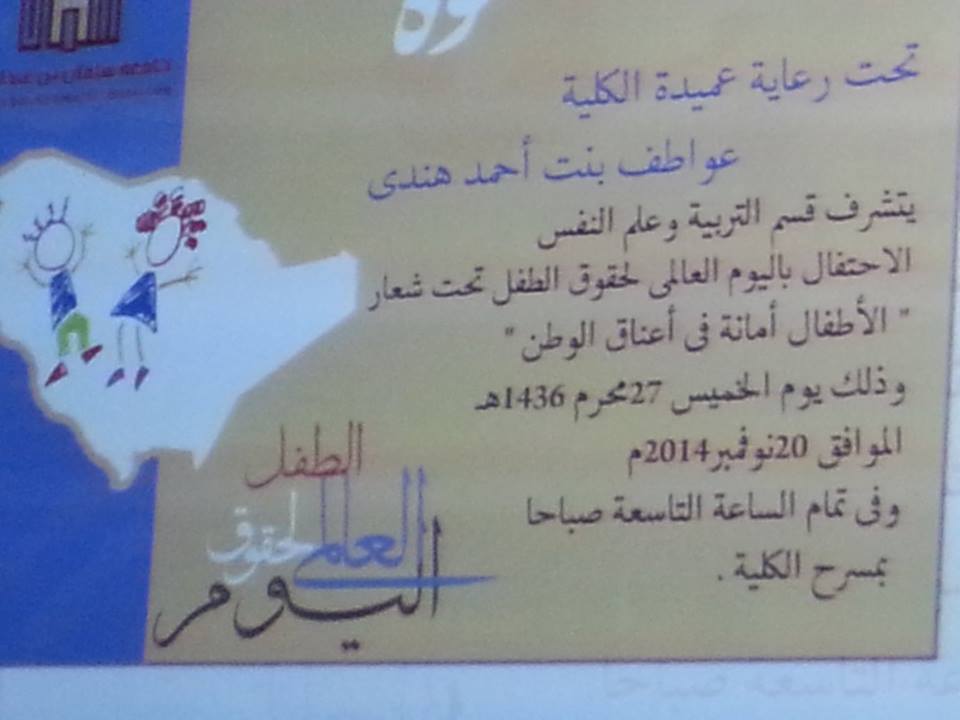 جامعة سلمان بن
تحت رعاية عميدة الكلية
عواطف بنت أحمد هندى
يتشرف قسم التربية وعلم النفس
الاحتفال باليوم العالمى لحقوق الطفل تحت شعار
" الأطفال أمانة فى أعناق الوطن "
وذلك يوم الخميس 27محرم 1436هـ
الموافق 20نوفمبر2014م
وفى تمام الساعة التاسعة صباحا
بمسرح الكلية .
الطفل
العالمى لحقوق
اليوم